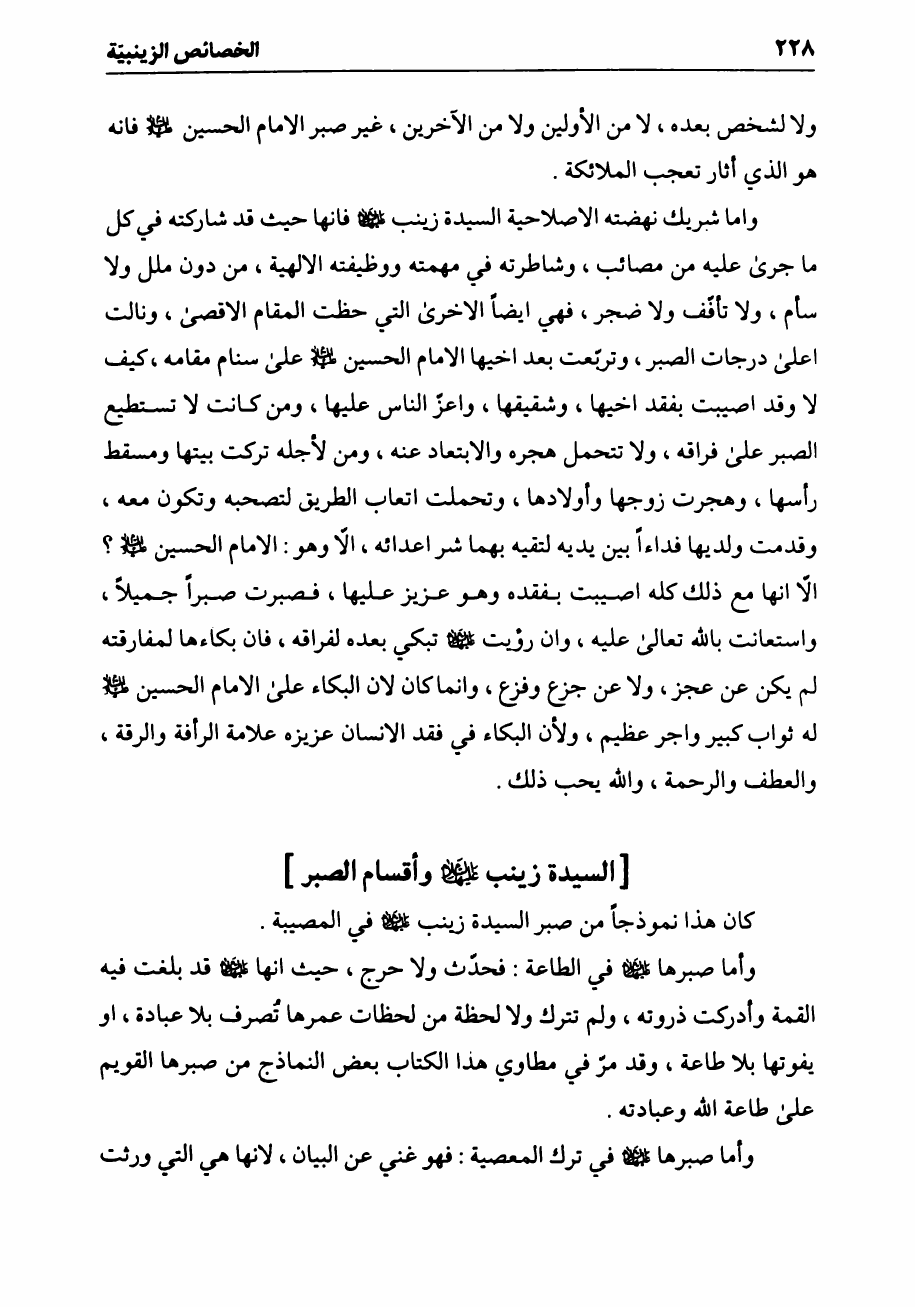 ٢٢٨ الخصائص الزينبيّة
ولا لشخص بعده ، لا من الأولين ولا من الآخرين ، غير صبر الامام الحسين عليه السلام فانه
هو الذي أثار تعجب الملائكة .
واما شريك نهضته الاصلاحية السيدة زينب عليها السلام فانها حيث قد شاركته في كل
ما جرىٰ عليه من مصائب ، وشاطرته في مهمته ووظيفته الالهية ، من دون ملل ولا
سأم ، ولا تأفّف ولا ضجر ، فهي ايضاً الاخرىٰ التي حظت المقام الاقصىٰ ، ونالت
اعلىٰ درجات الصبر ، وتربّعت بعد اخيها الامام الحسين عليه السلام علىٰ سنام مقامه ، كيف
لا وقد اصيبت بفقد اخيها ، وشقيقها ، واعزّ الناس عليها ، ومن كانت لا تستطيع
الصبر علىٰ فراقه ، ولا تتحمل هجره والابتعاد عنه ، ومن لأجله تركت بيتها ومسقط
رأسها ، وهجرت زوجها وأولادها ، وتحملت اتعاب الطريق لتصحبه وتكون معه ،
وقدمت ولديها فداءاً بين يديه لتقيه بهما شر اعدائه ، الّا وهو : الامام الحسين عليه السلام ؟
الّا انها مع ذلك كله اصيبت بفقده وهو عزيز عليها ، فصبرت صبراً جميلاً ،
واستعانت بالله تعالىٰ عليه ، وان رؤيت عليها السلام تبكي بعده لفراقه ، فان بكاءها لمفارقته
لم يكن عن عجز ، ولا عن جزع وفزع ، وانما كان لان البكاء علىٰ الامام الحسين عليه السلام
له ثواب كبير واجر عظيم ، ولأن البكاء في فقد الانسان عزيزه علامة الرأفة والرقة ،
والعطف والرحمة ، والله يحب ذلك .
[ السيدة زينب عليها السلام وأقسام الصبر ]
كان هذا نموذجاً من صبر السيدة زينب عليها السلام في المصيبة .
وأما صبرها عليها السلام في الطاعة : فحدّث ولا حرج ، حيث انها عليها السلام قد بلغت فيه
القمة وأدركت ذروته ، ولم تترك ولا لحظة من لحظات عمرها تُصرف بلا عبادة ، او
يفوتها بلا طاعة ، وقد مرّ في مطاوي هذا الكتاب بعض النماذج من صبرها القويم
علىٰ طاعة الله وعبادته .
وأما صبرها عليها السلام في ترك المعصية : فهو غني عن البيان ، لانها هي التي ورثت